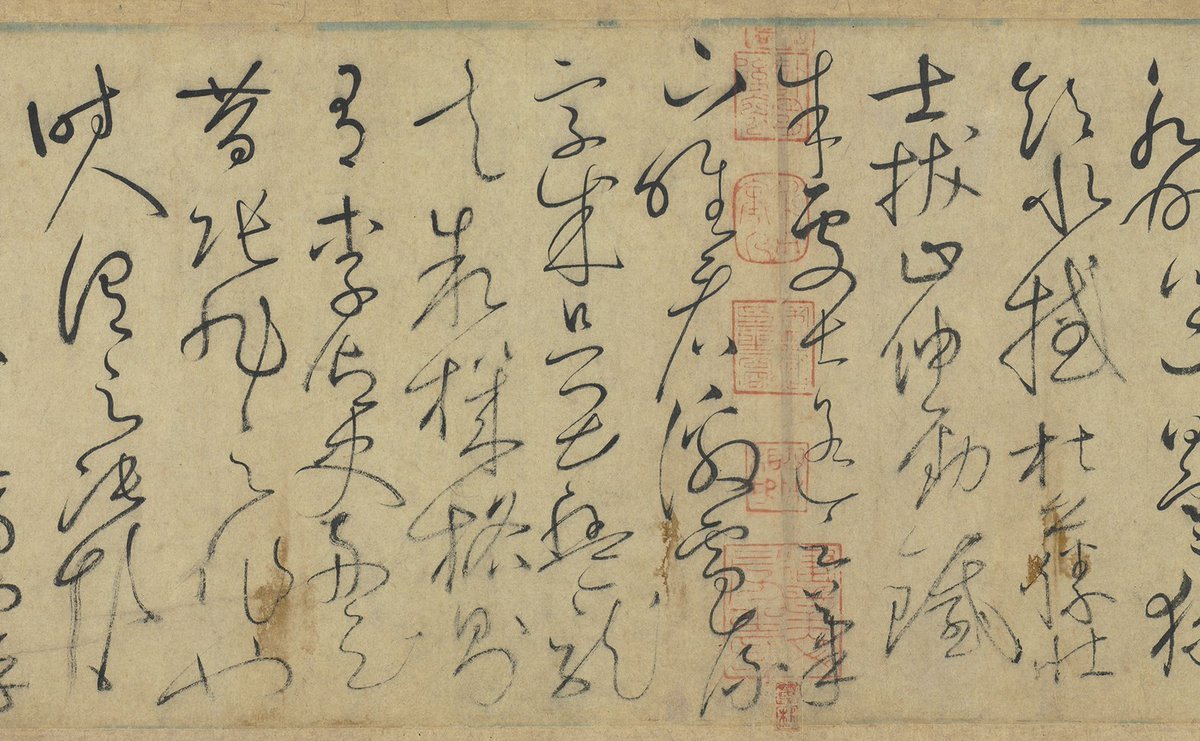 永州邕曰寒猿
飲水撼枯藤壯
士拔山伸勁鐵
朱處士遥云筆
下唯看激電流
字成只畏盤龍
走敘機格則
有李御史舟云
昔張旭之作也
時人謂之張顛